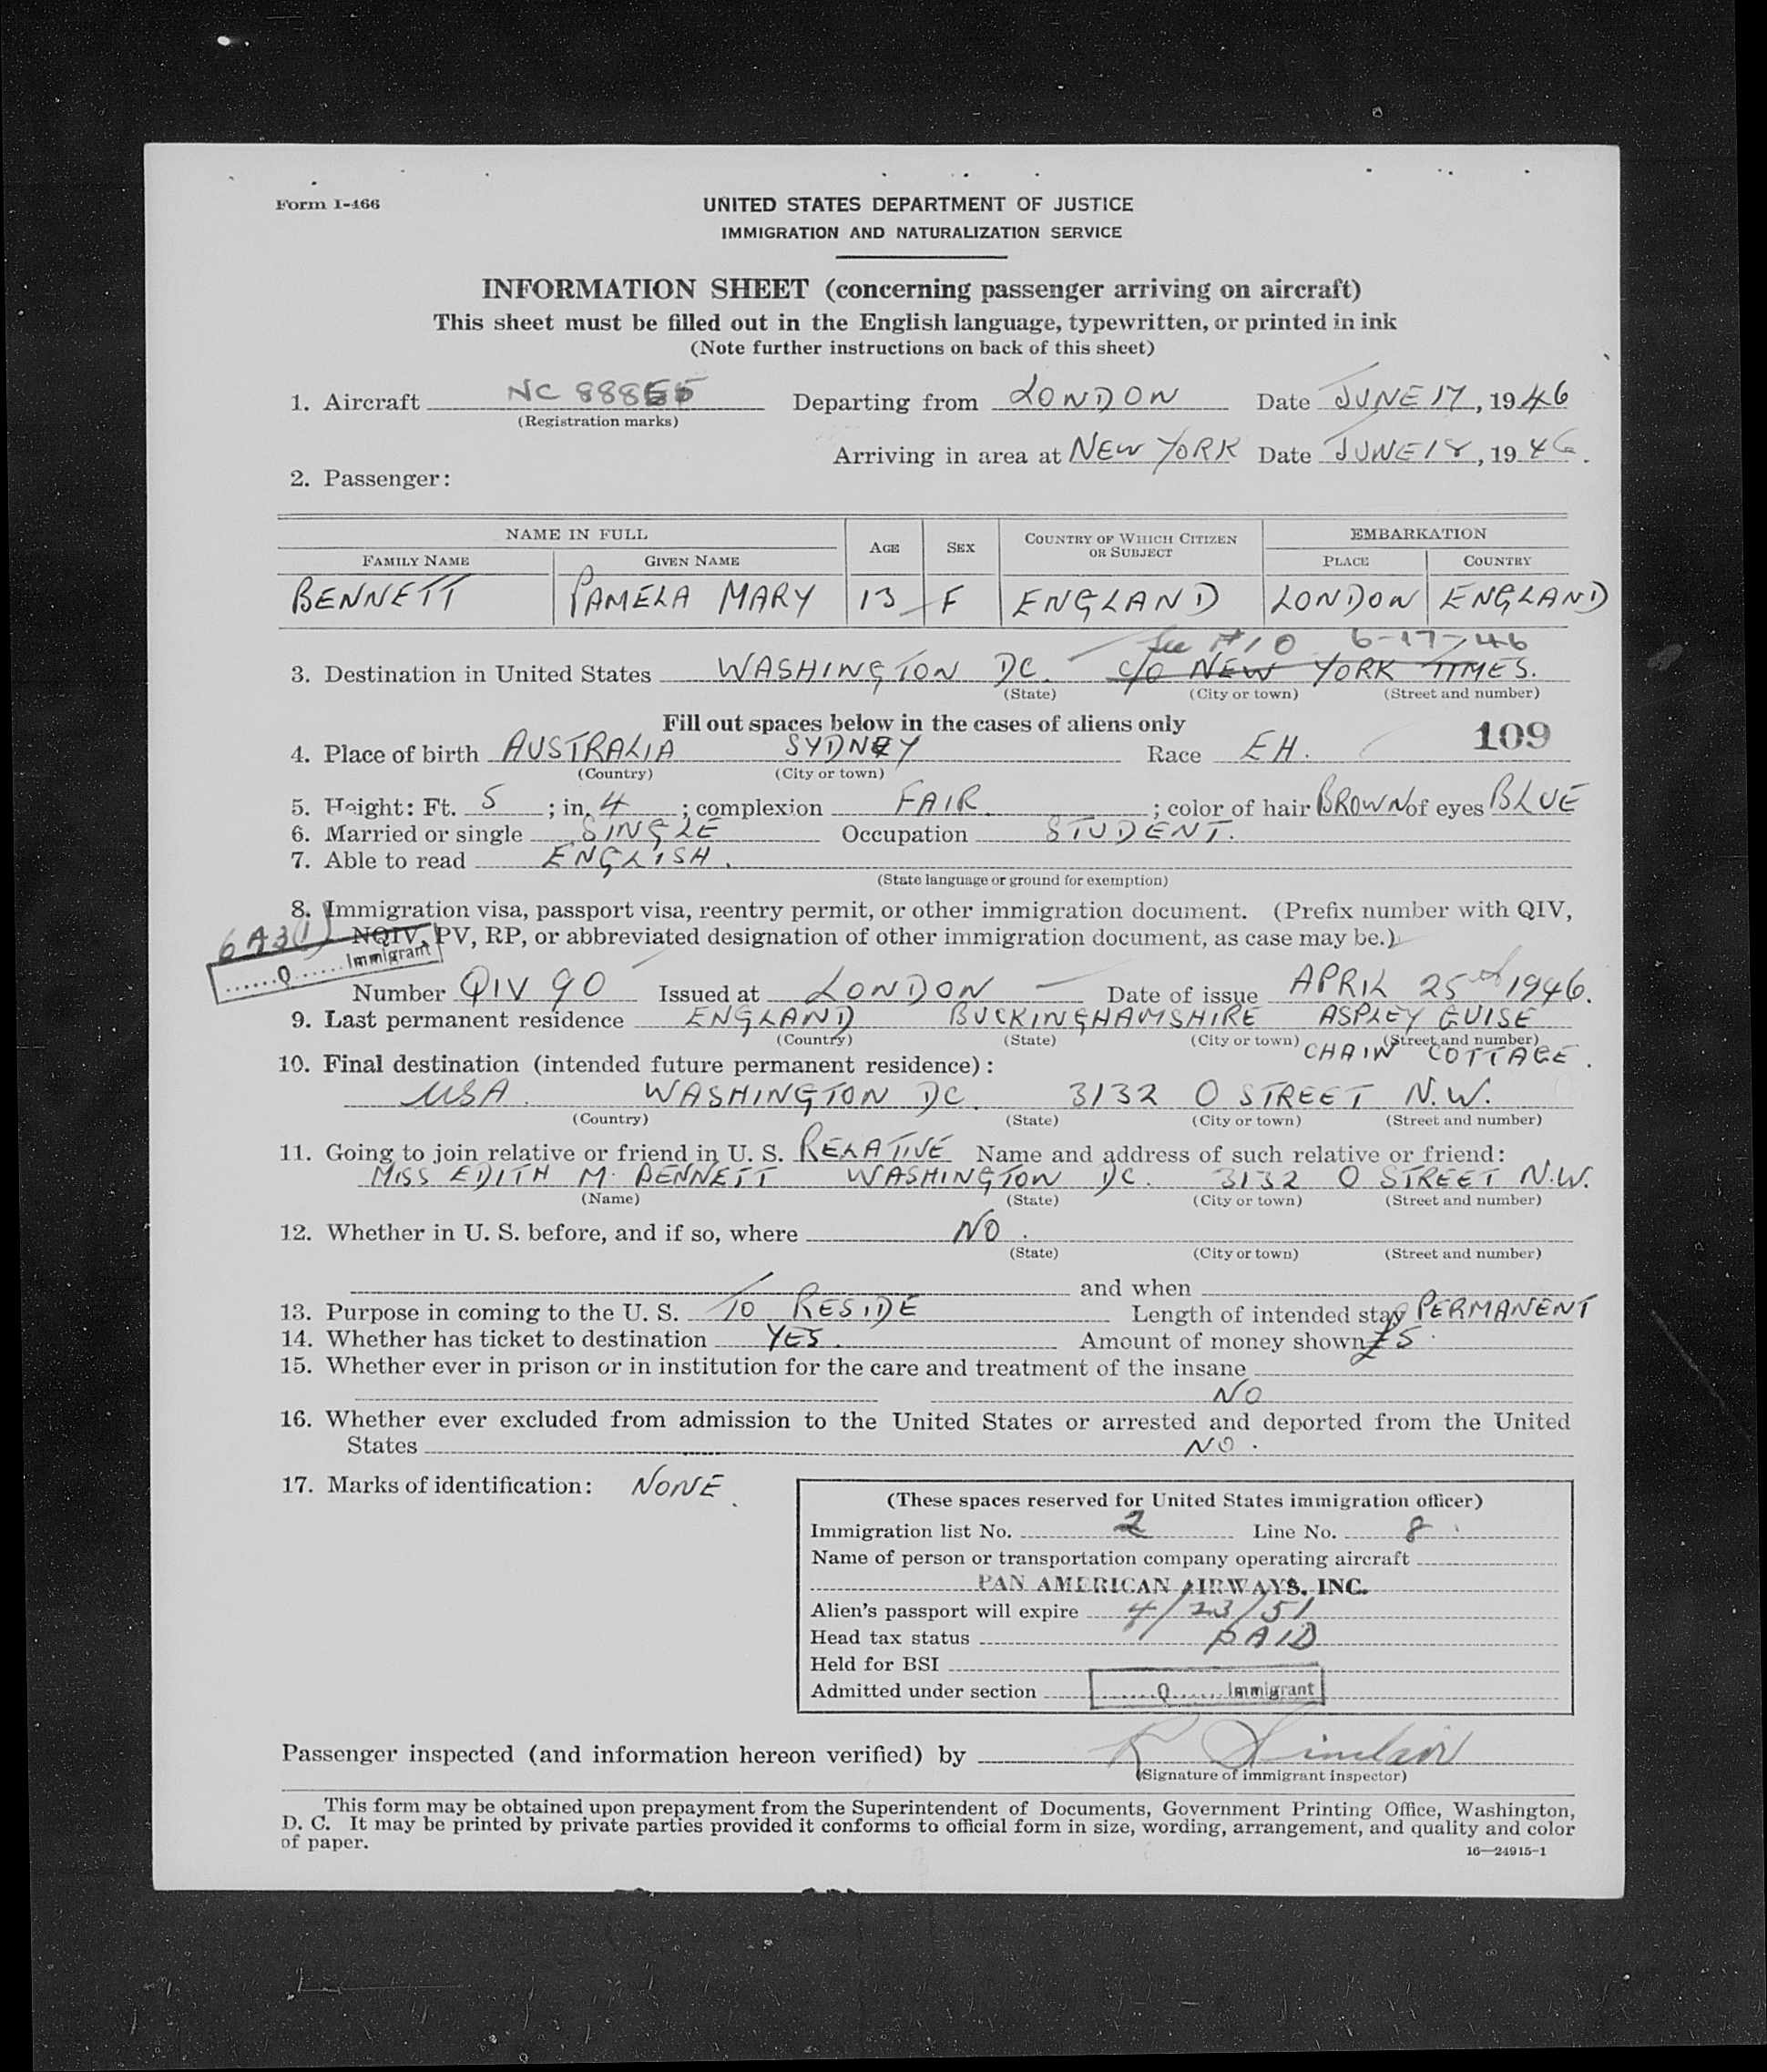 Form I-466
UNITED STATES DEPARTMENT OF JUSTICE
IMMIGRATION AND NATURALIZATION SERVICE
INFORMATION SHEET (concerning passenger arriving on aircraft)
This sheet must be filled out in the English language, typewritten, or printed in ink
(Note further instructions on back of this sheet)
1. Aircraft NC 88855 Departing from LONDON Date JUNE 17, 1946
(Registration marks)
Arriving in area at NEW YORK Date JUNE 18, 1946.
2. Passenger:
NAME IN FULL AGE SEX COUNTRY OF WHICH CITIZEN OR SUBJECT EMBARKATION
FAMILY NAME GIVEN NAME PLACE COUNTRY
BENNETT PAMELA MARY 13 F ENGLAND LONDON ENGLAND
See #10 6-17-46
3. Destination in United States WASHINGTON DC. C/O NEW YORK TIMES.
(State) (City or town) (Street and number)
Fill out spaces below in the cases of aliens only
109
4. Place of birth AUSTRALIA SYDNEY Race EH.
(Country) (City or town)
5. Height: Ft. 5 ; in. 4 ; complexion FAIR. ; color of hair BROWN of eyes BLUE
6. Married or single SINGLE Occupation STUDENT.
7. Able to read ENGLISH.
(State language or ground for exemption)
8. Immigration visa, passport visa, reentry permit, or other immigration document. (Prefix number with QIV,
6A3(1) NQIV, PV, RP, or abbreviated designation of other immigration document, as case may be.)
......Q...... Immigrant
Number QIV 90 Issued at LONDON Date of issue APRIL 25th 1946.
9. Last permanent residence ENGLAND BUCKINGHAMSHIRE ASPLEY GUISE
(Country) (State) (City or town) (Street and number)
CHAIN COTTAGE.
10. Final destination (intended future permanent residence):
USA. WASHINGTON DC. 3132 O STREET N.W.
(Country) (State) (City or town) (Street and number)
11. Going to join relative or friend in U. S. RELATIVE Name and address of such relative or friend:
MISS EDITH M. BENNETT WASHINGTON DC. 3132 O STREET N.W.
(Name) (State) (City or town) (Street and number)
12. Whether in U. S. before, and if so, where NO.
(State) (City or town) (Street and number)
and when
13. Purpose in coming to the U. S. TO RESIDE Length of intended stay PERMANENT
14. Whether has ticket to destination YES. Amount of money shown £5.
15. Whether ever in prison or in institution for the care and treatment of the insane
NO
16. Whether ever excluded from admission to the United States or arrested and deported from the United
States NO.
17. Marks of identification: NONE.
(These spaces reserved for United States immigration officer)
Immigration list No. 2 Line No. 8
Name of person or transportation company operating aircraft
PAN AMERICAN AIRWAYS, INC.
Alien's passport will expire 4/23/51
Head tax status PAID
Held for BSI
Admitted under section ......Q...... Immigrant
Passenger inspected (and information hereon verified) by R Sinclair
(Signature of immigrant inspector)
This form may be obtained upon prepayment from the Superintendent of Documents, Government Printing Office, Washington,
D. C. It may be printed by private parties provided it conforms to official form in size, wording, arrangement, and quality and color
of paper.
16—24915-1